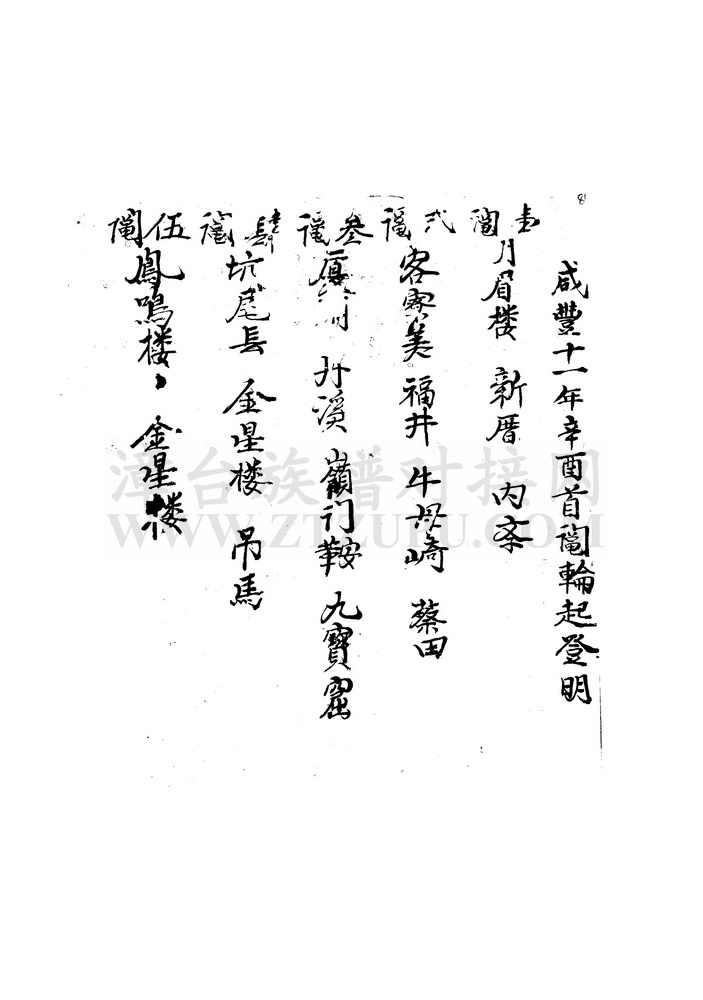 咸豐十一年辛酉首鬮輪起登明
壹鬮 月眉楼 新厝 内寮
弍鬮 客寮美 福井 牛母崎 蔡田
叁鬮 厦 丹溪 嶺门鞍 九寶窟
肆鬮 坑尾長 金星楼 吊馬
伍鬮 鳳鳴楼 金星楼
漳台族谱对接网
WWW.ZTZUPU.COM